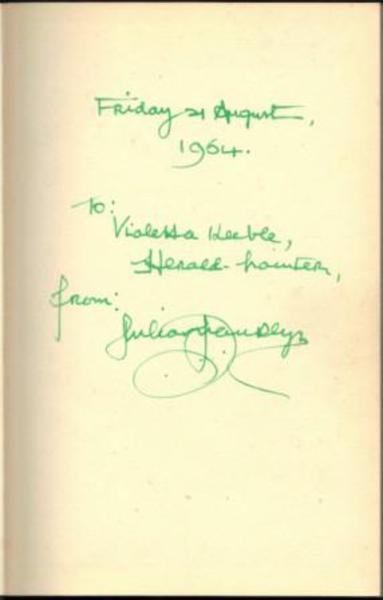 Friday 21 August,
1964.
To:
Violetta Keeble,
Herald-painter,
from:
Julian